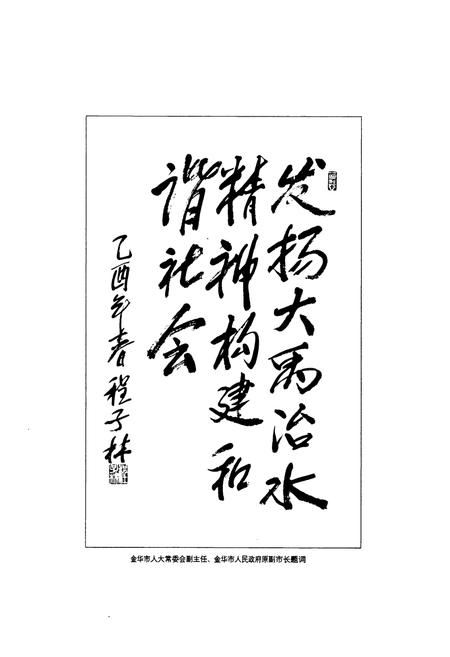 发扬大禹治水
精神构建和
谐社会
乙酉年春程子林
金华市人大常委会副主任、金华市人民政府原副市长题词